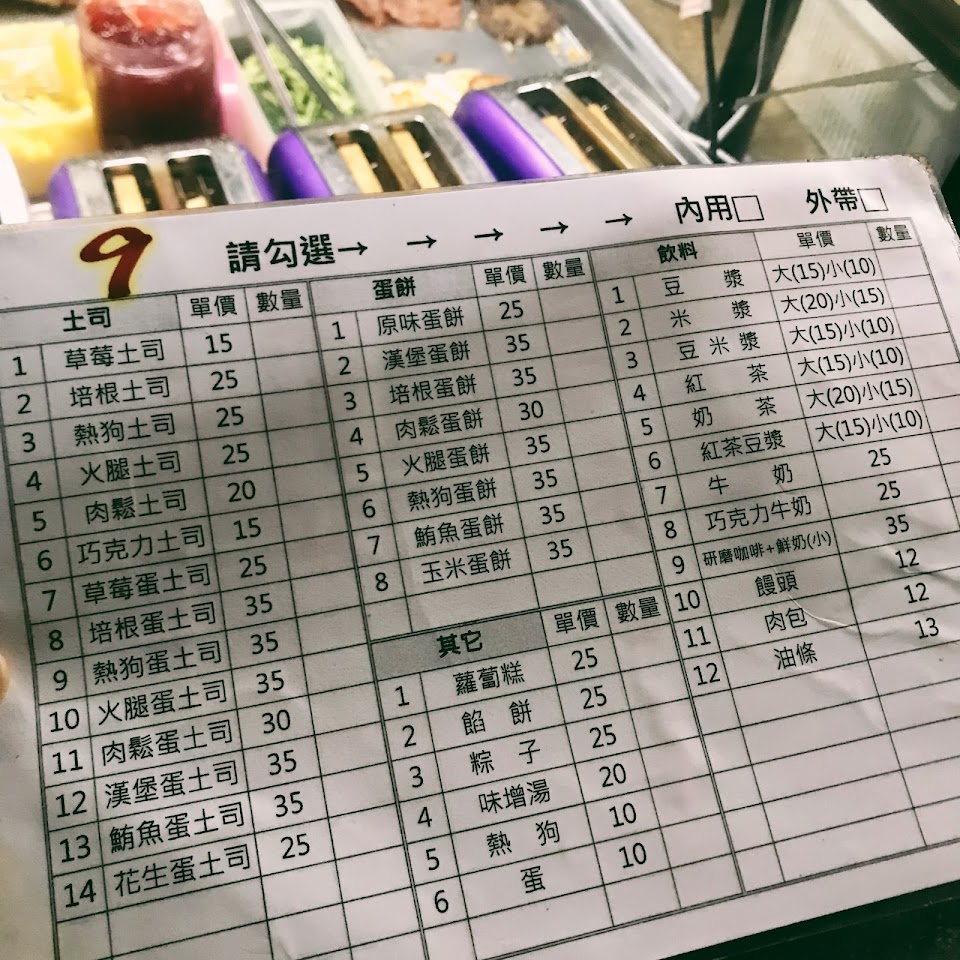 9 請勾選→ → → → → 內用□ 外帶□
土司 單價 數量
1 草莓土司 15
2 培根土司 25
3 熱狗土司 25
4 火腿土司 25
5 肉鬆土司 20
6 巧克力土司 15
7 草莓蛋土司 25
8 培根蛋土司 35
9 熱狗蛋土司 35
10 火腿蛋土司 35
11 肉鬆蛋土司 30
12 漢堡蛋土司 35
13 鮪魚蛋土司 35
14 花生蛋土司 25
蛋餅 單價 數量
1 原味蛋餅 25
2 漢堡蛋餅 35
3 培根蛋餅 35
4 肉鬆蛋餅 30
5 火腿蛋餅 35
6 熱狗蛋餅 35
7 鮪魚蛋餅 35
8 玉米蛋餅 35
其它 單價 數量
1 蘿蔔糕 25
2 餡餅 25
3 粽子 25
4 味增湯 20
5 熱狗 10
6 蛋 10
飲料 單價 數量
1 豆漿 大(15)小(10)
2 米漿 大(20)小(15)
3 豆米漿 大(15)小(10)
4 紅茶 大(15)小(10)
5 奶茶 大(20)小(15)
6 紅茶豆漿 大(15)小(10)
7 牛奶 25
8 巧克力牛奶 25
9 研磨咖啡+鮮奶(小) 35
10 饅頭 12
11 肉包 12
12 油條 13